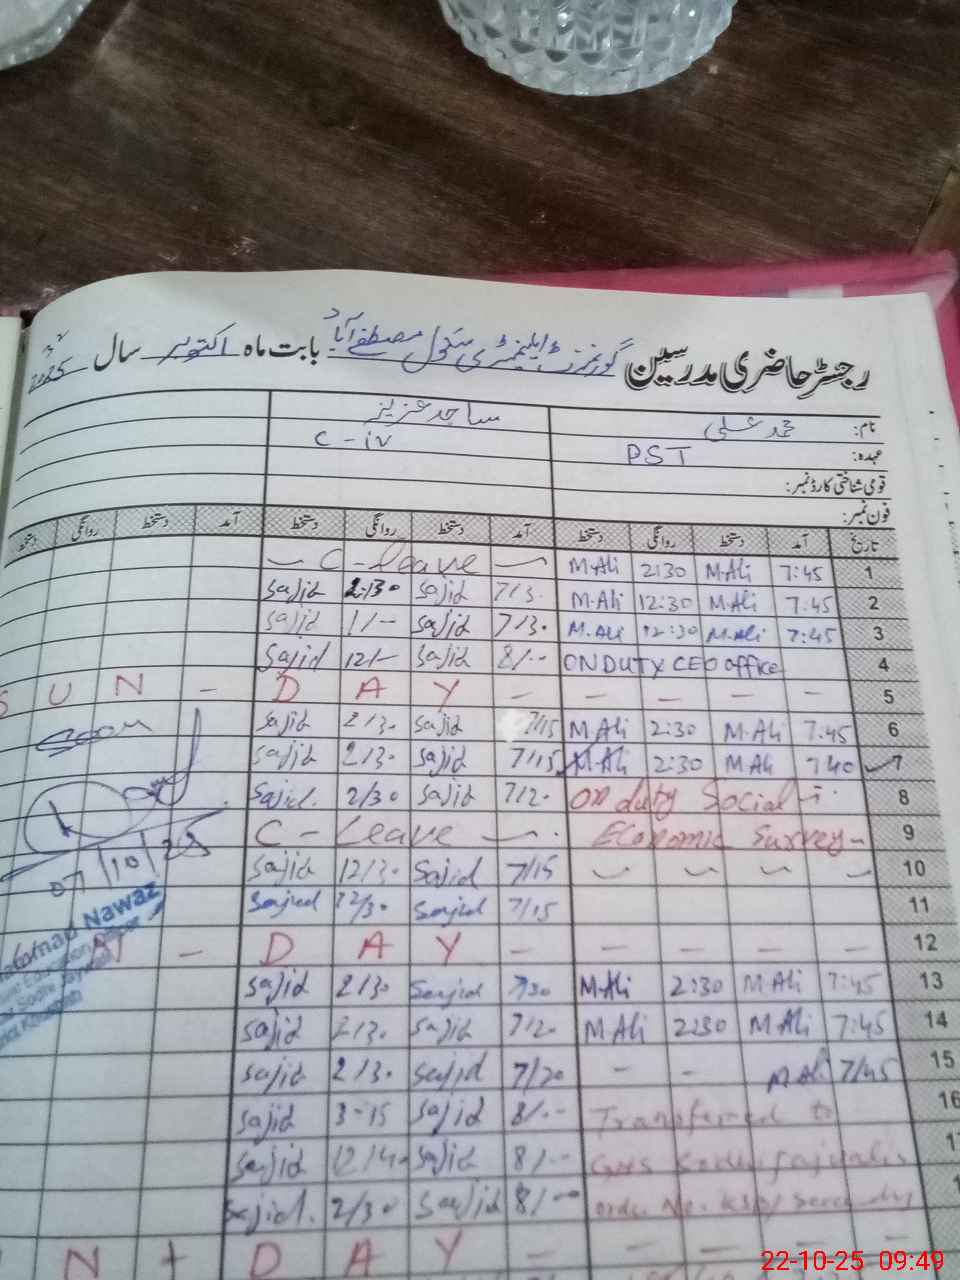 رجسٹر حاضری مدرسین گورنمنٹ ایلیمنٹری سکول مصطفے آباد بابت ماہ اکتوبر سال 2025
نام: محمد علی ساجد عزیز
عہدہ: PST C-iv
قومی شناختی کارڈ نمبر:
فون نمبر:
تاریخ آمد دستخط روانگی دستخط آمد دستخط روانگی دستخط آمد دستخط روانگی دستخط
1 7:45 M.Ali 2:30 M.Ali — C-leave —
2 7:45 M.Ali 12:30 M.Ali 7/3. sajid 2:30 sajid
3 7:45 M.Ali 12:30 M.Ali 7/3. sajid 1/— sajid
4 ON DUTY CEO office 8/-- sajid 12/— sajid
5 SUN - DAY - - - - -
6 7:45 M.Ali 2:30 M.Ali 7/15 sajid 2/3. sajid
7 7:40 M.Ali 2:30 M.Ali 7/15 sajid 2/3. sajid
8 On duty Social - 7/2. sajid 2/30 sajid.
9 Economic Survey - C-Leave —
10 7/15 sajid 12/3. sajid
11 7/15 sajid 12/30 sajid
12 - DAY - - - - -
13 7:45 M.Ali 2:30 M.Ali 7/30 sajid 2/3. sajid
14 7:45 M.Ali 2:30 M.Ali 7/2. sajid 2/3. sajid
15 7/45 M.Ali - - 7/20 sajid 2/3. sajid
16 Transferred to 8/-- sajid 3-15 sajid
GHS 8/-- sajid 12/40 sajid
order No. 8/-- sajid 2/30 sajid.
N + DAY - - - -
07/10/25
Nawaz
22-10-25 09:49